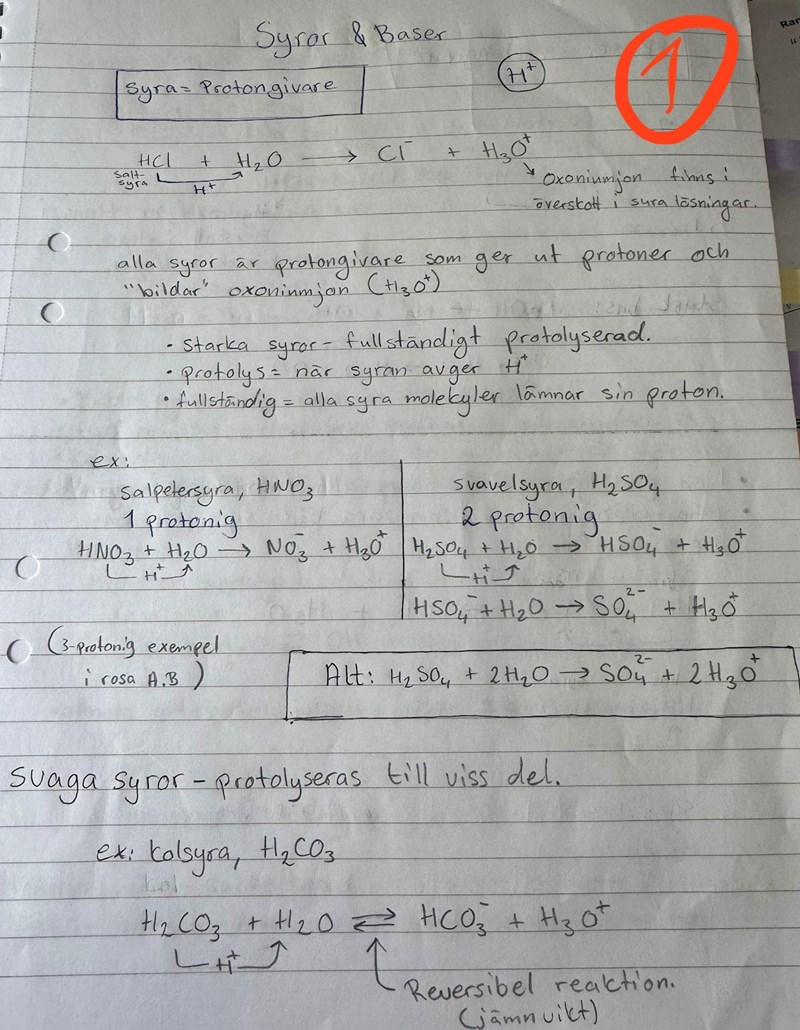 Syror & Baser
1
Syra = Protongivare
H⁺
HCl + H₂O → Cl⁻ + H₃O⁺
salt-
syra
H⁺
oxoniumjon finns i
överskott i sura lösningar.
alla syror är protongivare som ger ut protoner och
"bildar" oxoniumjon (H₃O⁺)
· Starka syror - fullständigt protolyserad.
· protolys = när syran avger H⁺
· fullständig = alla syra molekyler lämnar sin proton.
ex:
salpetersyra, HNO₃
1 protonig
HNO₃ + H₂O → NO₃⁻ + H₃O⁺
H⁺
svavelsyra, H₂SO₄
2 protonig
H₂SO₄ + H₂O → HSO₄⁻ + H₃O⁺
H⁺
HSO₄⁻ + H₂O → SO₄²⁻ + H₃O⁺
(3-protonig exempel
i rosa A.B)
Alt: H₂SO₄ + 2H₂O → SO₄²⁻ + 2H₃O⁺
Svaga syror - protolyseras till viss del.
ex: kolsyra, H₂CO₃
H₂CO₃ + H₂O ⇌ HCO₃⁻ + H₃O⁺
H⁺
Reversibel reaktion.
(jämnvikt)